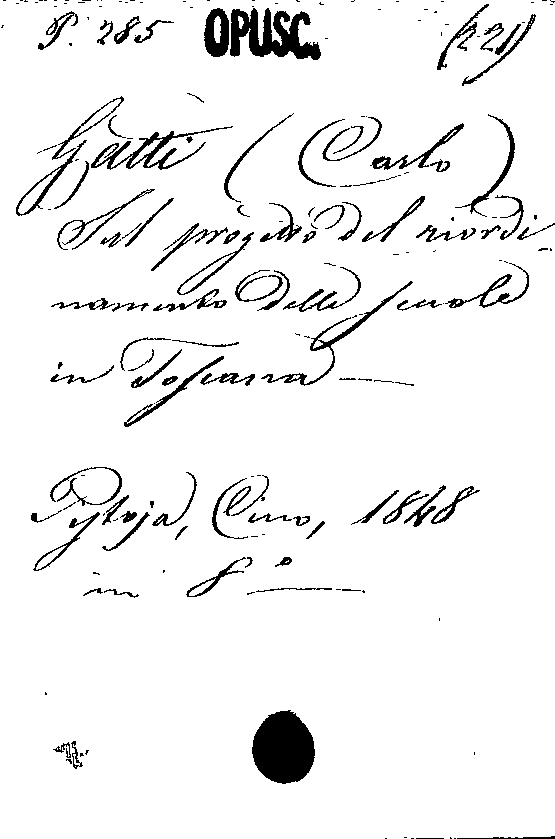 P. 285 OPUSC. (221)
Gatti (Carlo)
Sul progetto del riordi-
namento delle scuole
in Toscana —
Pistoja, Cino, 1848
in 8° —